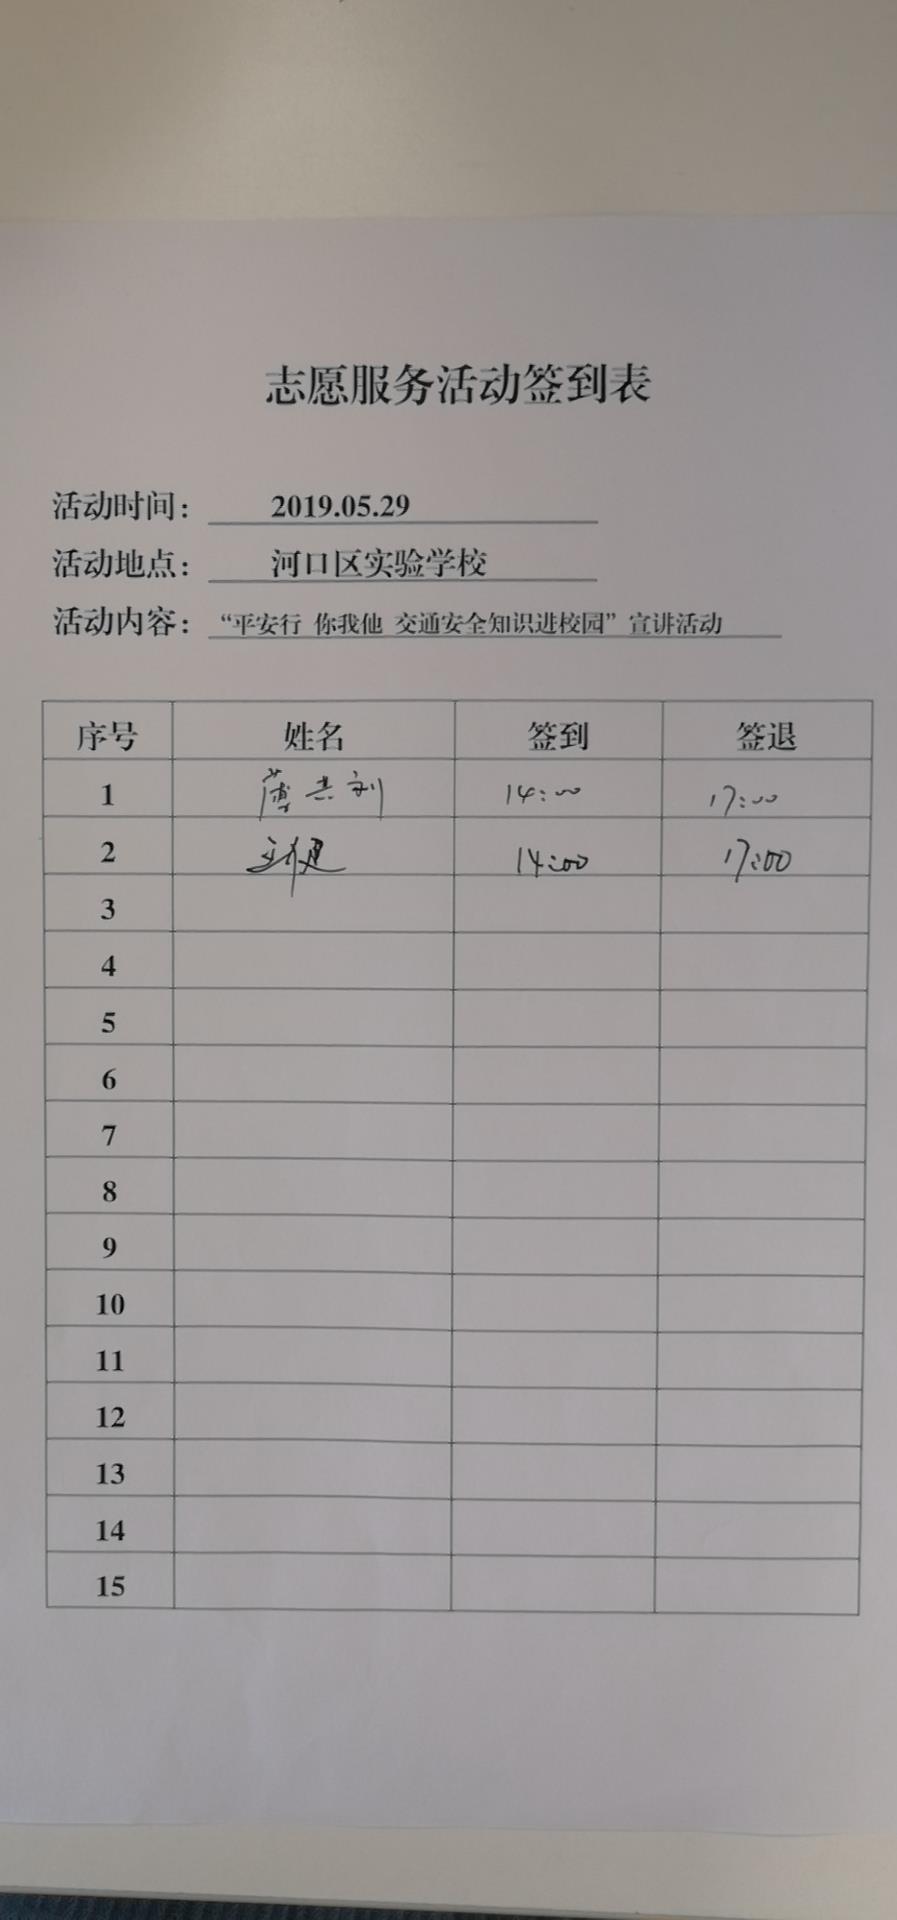 志愿服务活动签到表
活动时间： 2019.05.29
活动地点： 河口区实验学校
活动内容： “平安行 你我他 交通安全知识进校园”宣讲活动
序号 姓名 签到 签退
1 14:00 17:00
2 14:00 17:00
3
4
5
6
7
8
9
10
11
12
13
14
15